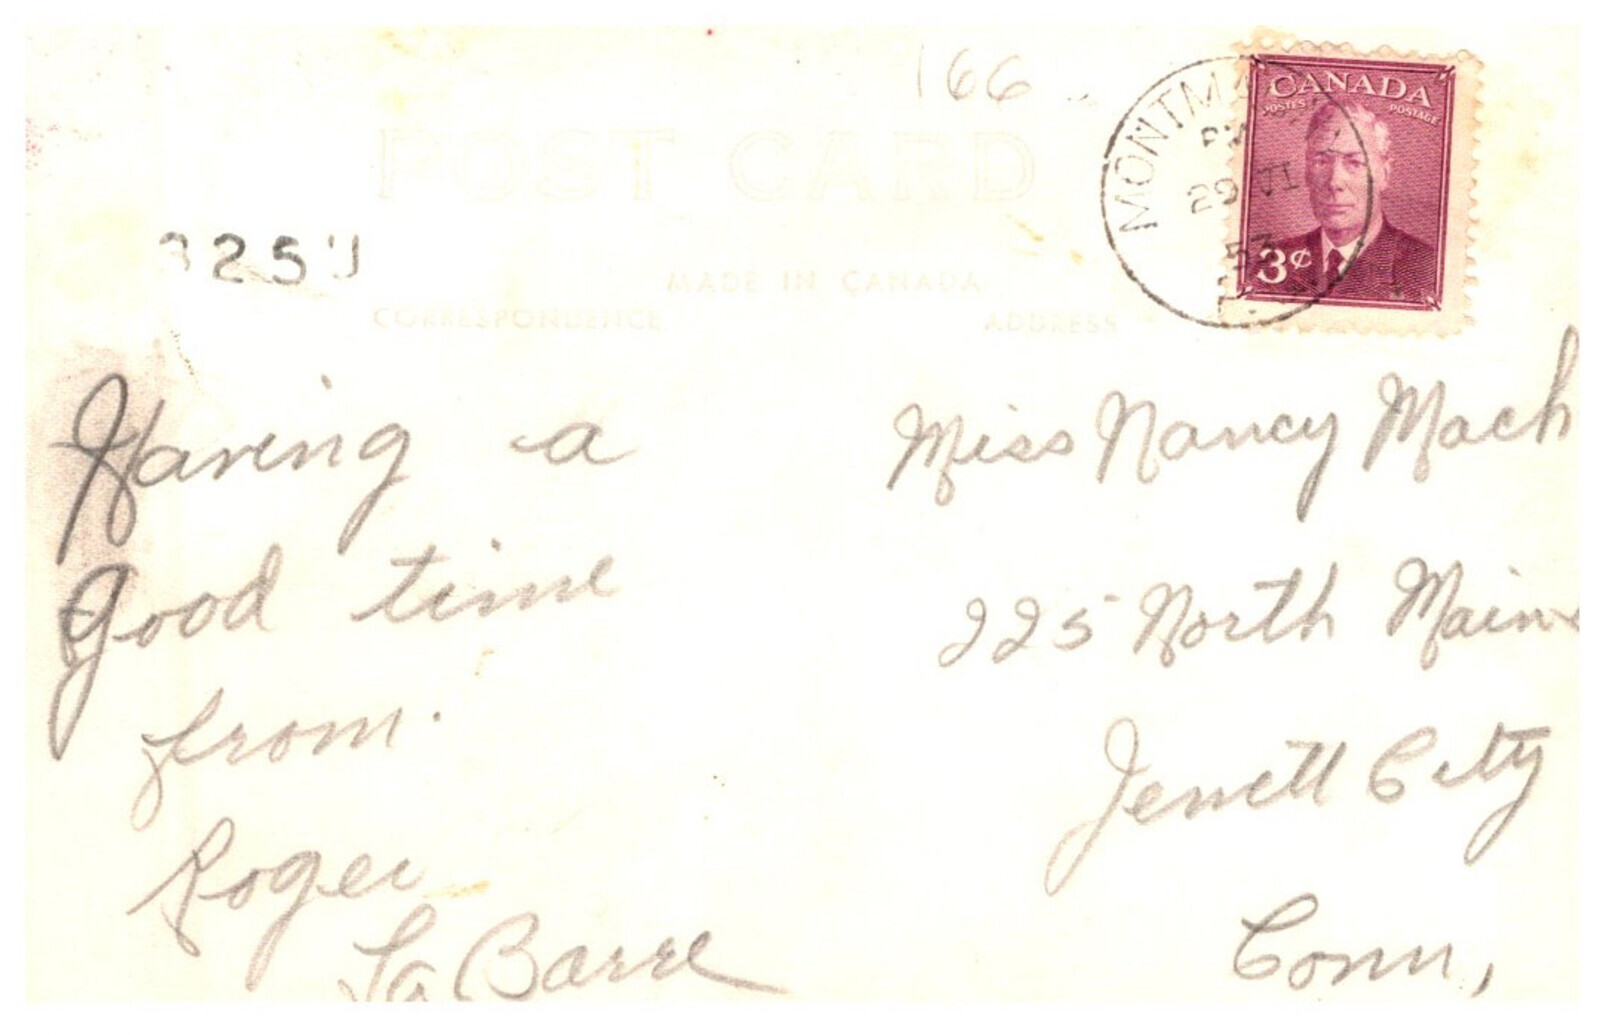 166
POST CARD
MADE IN CANADA
CORRESPONDENCE
ADDRESS
CANADA
POSTES POSTAGE
3¢
29 VI
53
Having a
Good time
from
Roger
La Barre
Miss Nancy Mach
225 North Main
Jewett City
Conn,